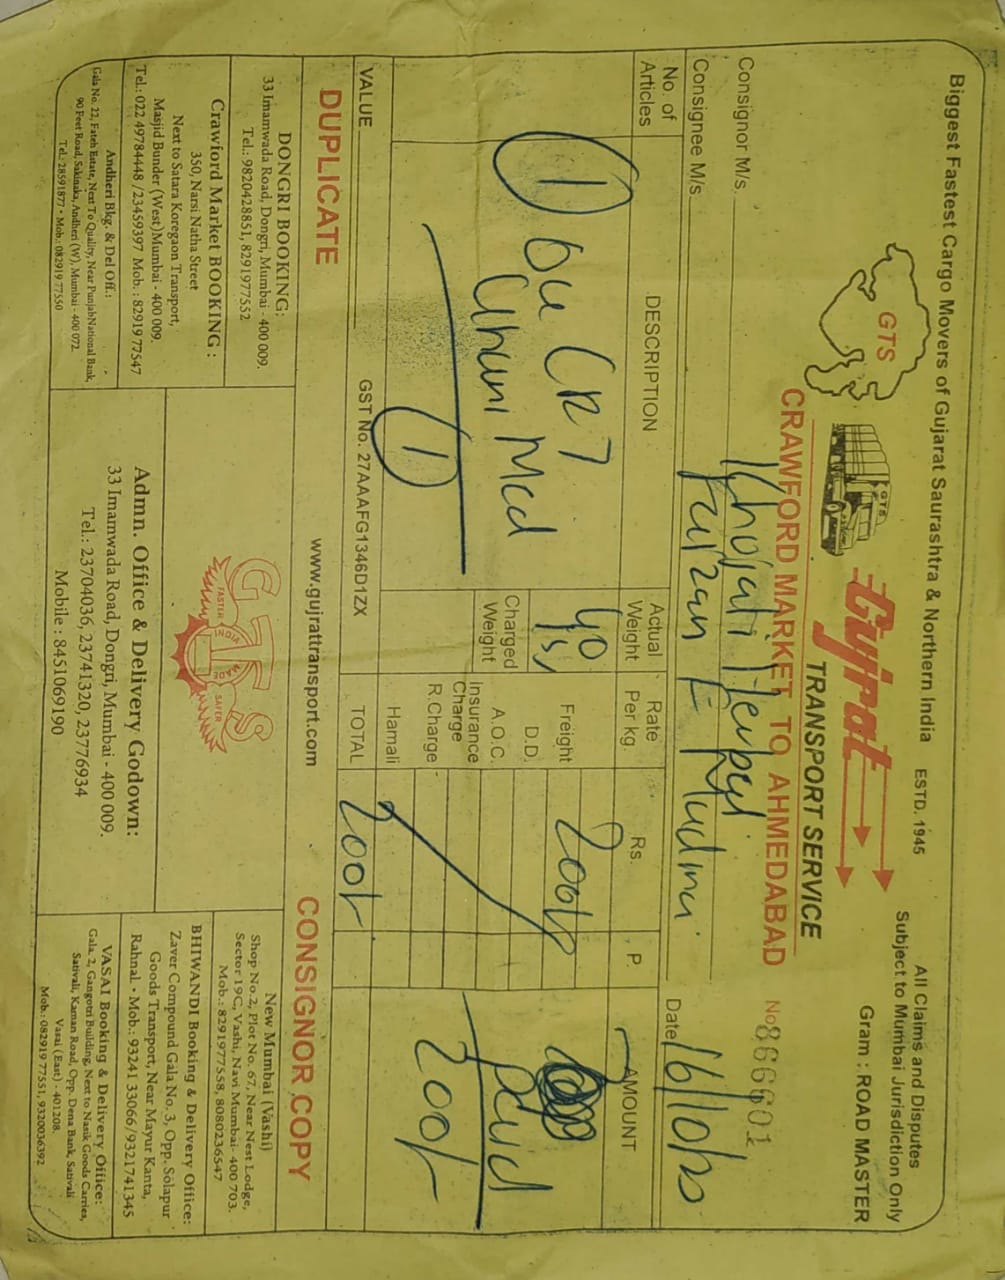 Biggest Fastest Cargo Movers of Gujarat Saurashtra & Northern India ESTD. 1945
All Claims and Disputes
Subject to Mumbai Jurisdiction Only
Gram : ROAD MASTER
GTS
GTS
Gujrat
TRANSPORT SERVICE
CRAWFORD MARKET TO AHMEDABAD
No 866601
Consignor M/s. Khojati Herbal
Date 16/10/
Consignee M/s Faizan E
No. of Articles DESCRIPTION Actual Weight Rate Per kg. Rs. P. AMOUNT
1 CRT
40
Charged Weight
Freight 200/-
D.D.
A.O.C.
Insurance Charge
R.Charge
Hamali
TOTAL 200/-
Paid
200/-
1
VALUE
GST No. 27AAAFG1346D1ZX
DUPLICATE
www.gujrattransport.com
CONSIGNOR COPY
DONGRI BOOKING:
33 Imamwada Road, Dongri, Mumbai - 400 009.
Tel.: 9820428851, 8291977552
Crawford Market BOOKING :
350, Narsi Natha Street
Next to Satara Koregaon Transport,
Masjid Bunder (West)Mumbai - 400 009.
Tel.: 022 49784448 / 23459397 Mob. : 82919 77547
Andheri Bkg. & Del Off.:
Gala No. 22, Fateh Estate, Next To Quality, Near PunjabNational Bank,
90 Feet Road, Sakinaka, Andheri (W), Mumbai - 400 072.
Tel.: 28591877 • Mob.: 082919 77550
GTS
FASTER
INDIA
MADE
SAFER
Admn. Office & Delivery Godown:
33 Imamwada Road, Dongri, Mumbai - 400 009.
Tel.: 23704036, 23741320, 23776934
Mobile : 8451069190
New Mumbai (Vashi)
Shop No.2, Plot No. 67, Near Nest Lodge,
Sector 19C, Vashi, Navi Mumbai- 400 703.
Mob.: 8291977558, 8080236547
BHIWANDI Booking & Delivery Office:
Zaver Compound Gala No. 3, Opp. Solapur
Goods Transport, Near Mayur Kanta,
Rahnal. • Mob.: 93241 33066/9321741345
VASAI Booking & Delivery Office:
Gala. 2, Gangotri Building, Next to Nasik Goods Carries,
Sativali, Kaman Road, Opp. Dena Bank, Sativali
Vasai (East) - 401208.
Mob.: 082919 77551, 9320036392